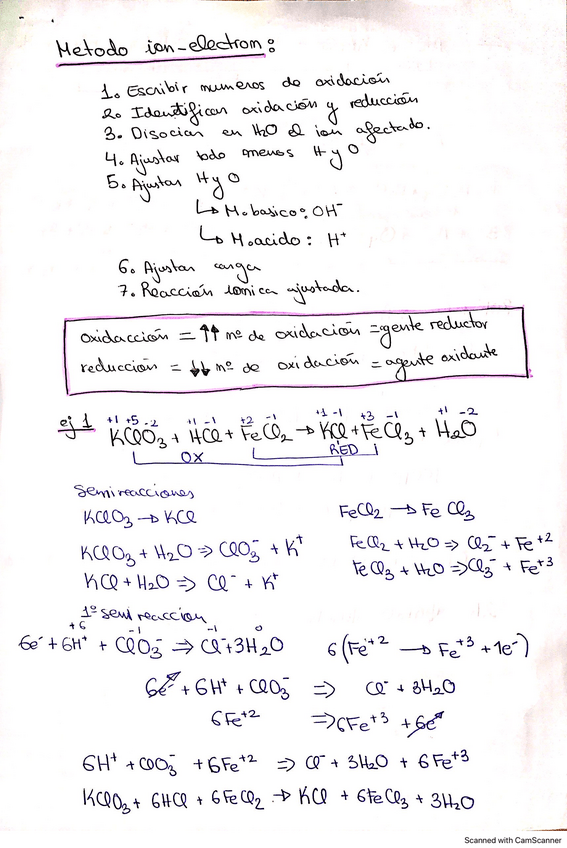 Metodo ion-electron:
1. Escribir numeros de oxidación
2. Identificar oxidación y reducción
3. Disociar en H2O el ion afectado.
4. Ajustar todo menos H y O
5. Ajustar H y O
↳ M.basico: OH⁻
↳ M.acido: H⁺
6. Ajustar carga
7. Reacción iónica ajustada.
oxidacción = ↑↑ nº de oxidación = gente reductor
reducción = ↓↓ nº de oxidación = agente oxidante
+1 +5 -2 +1 -1 +2 -1 +1 -1 +3 -1 +1 -2
ej 1 KClO3 + HCl + FeCl2 → KCl + FeCl3 + H2O
OX RED
Semireacciones
KClO3 → KCl
KClO3 + H2O ⇒ ClO3⁻ + K⁺
KCl + H2O ⇒ Cl⁻ + K⁺
FeCl2 → FeCl3
FeCl2 + H2O ⇒ Cl2⁻ + Fe⁺²
FeCl3 + H2O ⇒ Cl3⁻ + Fe⁺³
1º semireaccion
+6 -1 -1 0
6e⁻ + 6H⁺ + ClO3⁻ ⇒ Cl⁻ + 3H2O 6(Fe⁺² → Fe⁺³ + 1e⁻)
6e⁻ + 6H⁺ + ClO3⁻ ⇒ Cl⁻ + 3H2O
6Fe⁺² ⇒ 6Fe⁺³ + 6e⁻
6H⁺ + ClO3⁻ + 6Fe⁺² ⇒ Cl⁻ + 3H2O + 6Fe⁺³
KClO3 + 6HCl + 6FeCl2 → KCl + 6FeCl3 + 3H2O
Scanned with CamScanner